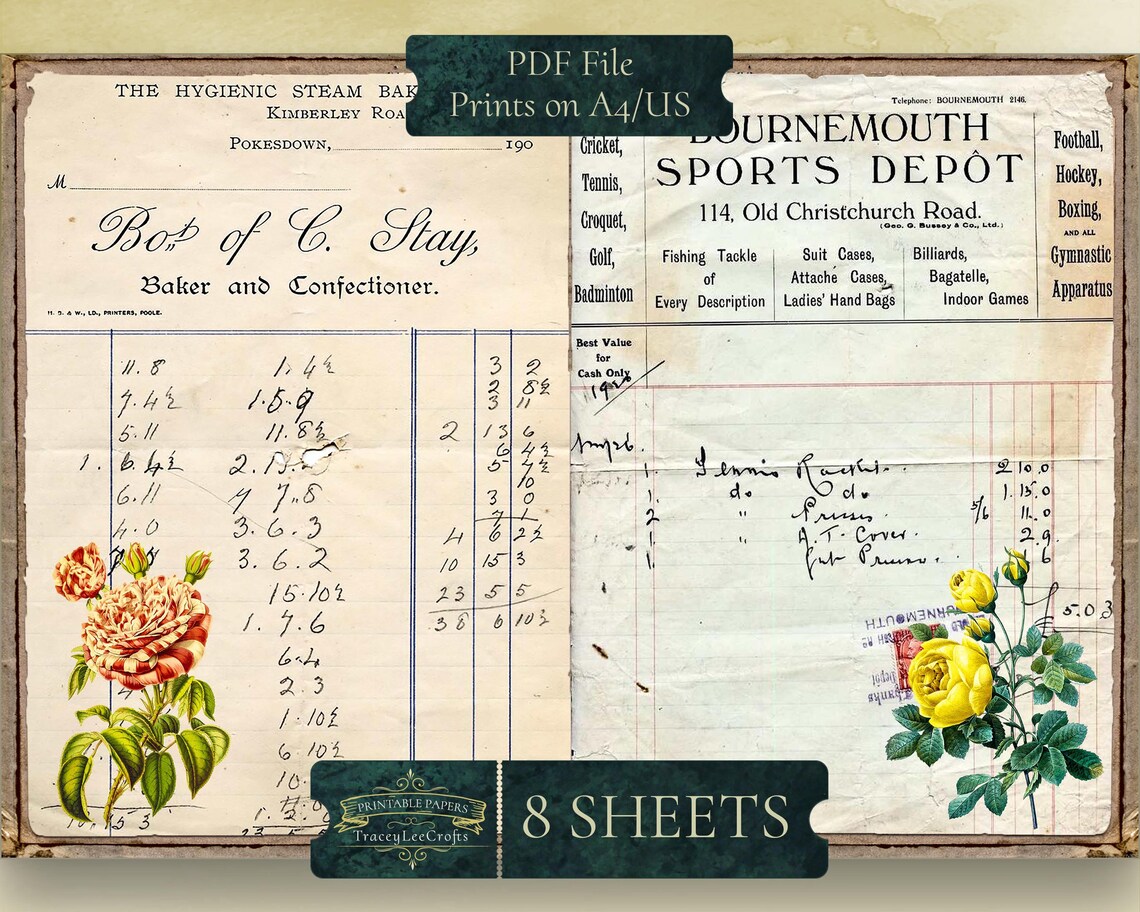 PDF File
Prints on A4/US
THE HYGIENIC STEAM BAK
KIMBERLEY ROA
POKESDOWN, 190
M
Bot of C. Stay,
Baker and Confectioner.
H. S. & W., LD., PRINTERS, POOLE.
11.8 1.4½ 3 2
7.4½ 1.5.9 2 8½
3 11
5.11 11.8½ 2 13 6
6 4½
1. 6.4½ 2.13. 5 7½
10
6.11 7.8 3 0
7 1
4.0 3.6.3 4 6 2½
3.6.2 10 15 3
15.10½ 23 5 5
1.7.6 38 6 10½
6.4
4 2.3
1.10½
6.10½
10.
15 3
Telephone: BOURNEMOUTH 2146.
BOURNEMOUTH
SPORTS DEPÔT
114, Old Christchurch Road.
(Geo. G. Bussey & Co., Ltd.)
Cricket,
Tennis,
Croquet,
Golf,
Badminton
Football,
Hockey,
Boxing,
AND ALL
Gymnastic
Apparatus
Fishing Tackle
of
Every Description
Suit Cases,
Attaché Cases,
Ladies' Hand Bags
Billiards,
Bagatelle,
Indoor Games
Best Value
for
Cash Only
1920
1. Tennis Racket. 2 10.0
1. do do 1.15.0
2 " Presses. 5/6 11.0
1. " A.T. Cover. 2.9.
1. 6
£5.0.3
URNEMOUTH
Depôt
PRINTABLE PAPERS
TraceyLeeCrofts
8 SHEETS